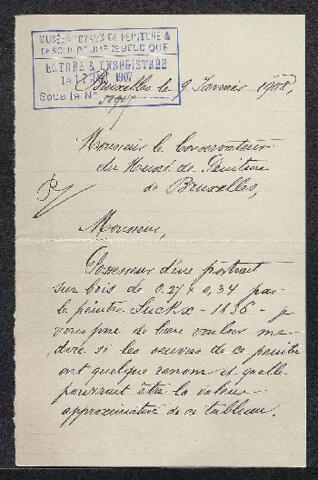 MUSÉES ROYAUX DE PEINTURE &
DE SCULPTURE DE BELGIQUE
ENTRÉE & ENREGISTRÉE
le 1907
Sous le No
Bruxelles le 9 Janvier
Monsieur le Conservateur
du Musé de Peinture
de Bruxelles,
Monsieur,
Possesseur d'un portrait
sur bois de 0.27 x 0,34 par
le peintre - 1836 - je
vous prie de bien vouloir me
dire si les oeuvres de ce peintre
ont quelque renom et quelle
pourrait être la valeur
approximative de ce tableau.